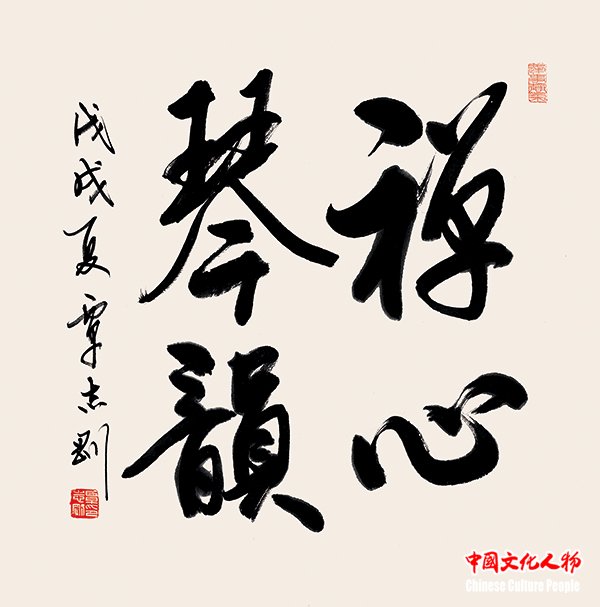 禪心
琴韻
戊戌夏覃志剛
中國文化人物
Chinese Culture People